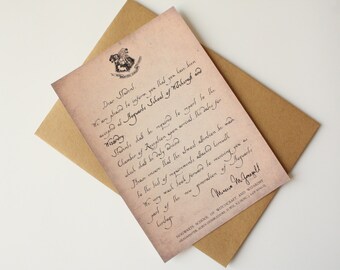 Dear Student,
We are pleased to inform you that you have been
accepted at Hogwarts School of Witchcraft and
Wizardry.
Students shall be required to report to the
Chamber of Reception upon arrival, the dates for
which shall be duly advised.
Please ensure that the utmost attention be made
to the list of requirements attached herewith.
We very much look forward to receiving you as
part of the new generation of Hogwarts'
heritage.
Minerva McGonagall
HOGWARTS SCHOOL OF WITCHCRAFT AND WIZARDRY